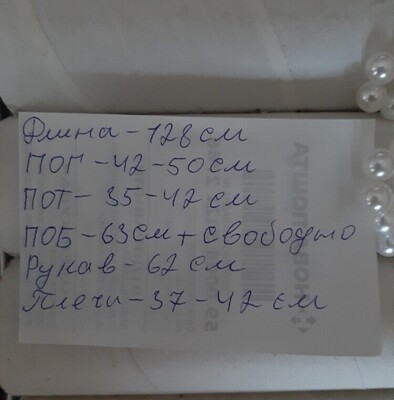 Длина - 128 см
ПОГ - 42 - 50 см
ПОТ - 35 - 42 см
ПОБ - 63 см + свободно
Рукав - 62 см
Плечи - 37 - 42 см
НОВА ПОШТА